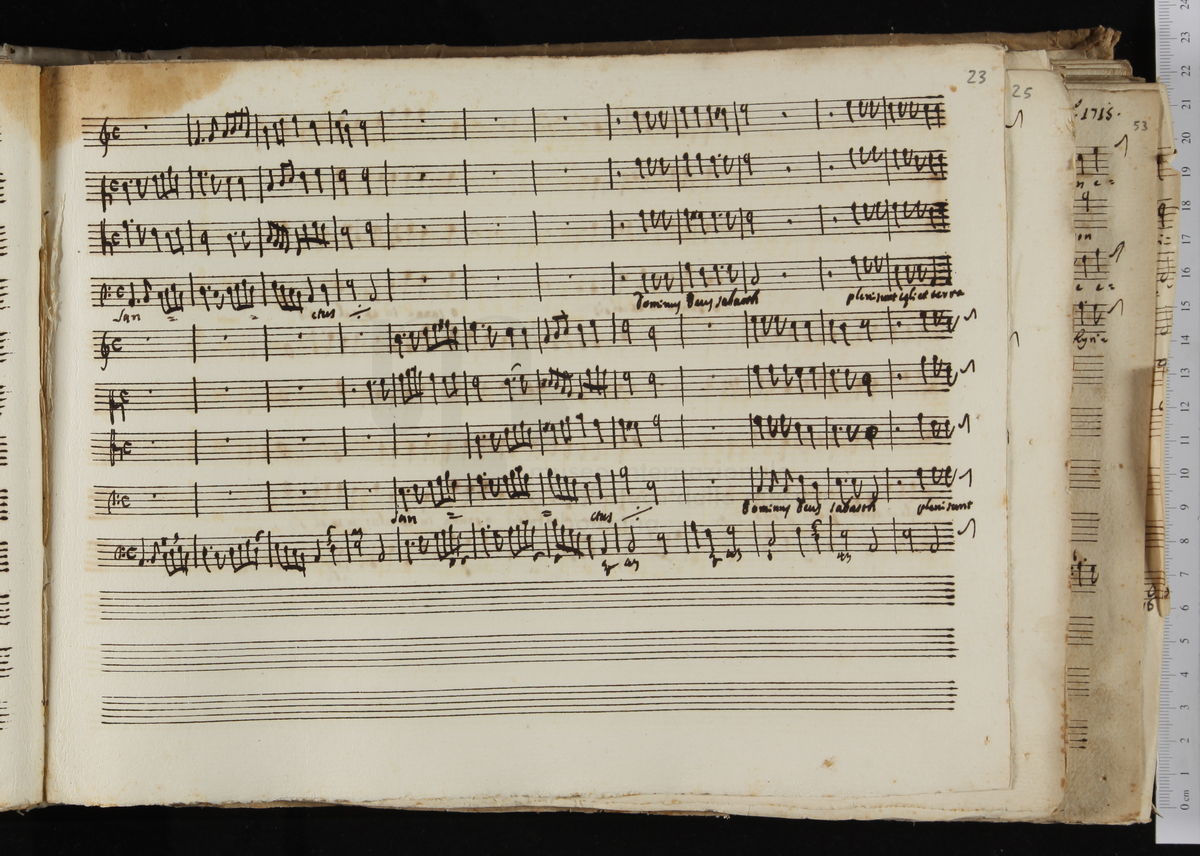 23
25
1715.
53
San = = ctus Dominus Deus sabaoth pleni sunt celi et terra
San = = ctus Dominus Deus sabaoth pleni sunt
Kyrie
24
23
22
21
20
19
18
17
16
15
14
13
12
11
10
9
8
7
6
5
4
3
2
1
0 cm